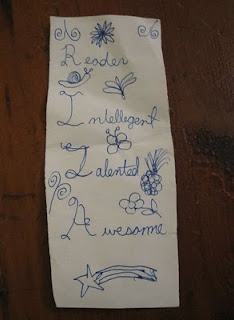 Reader
Intellegent
Talented
Awesome